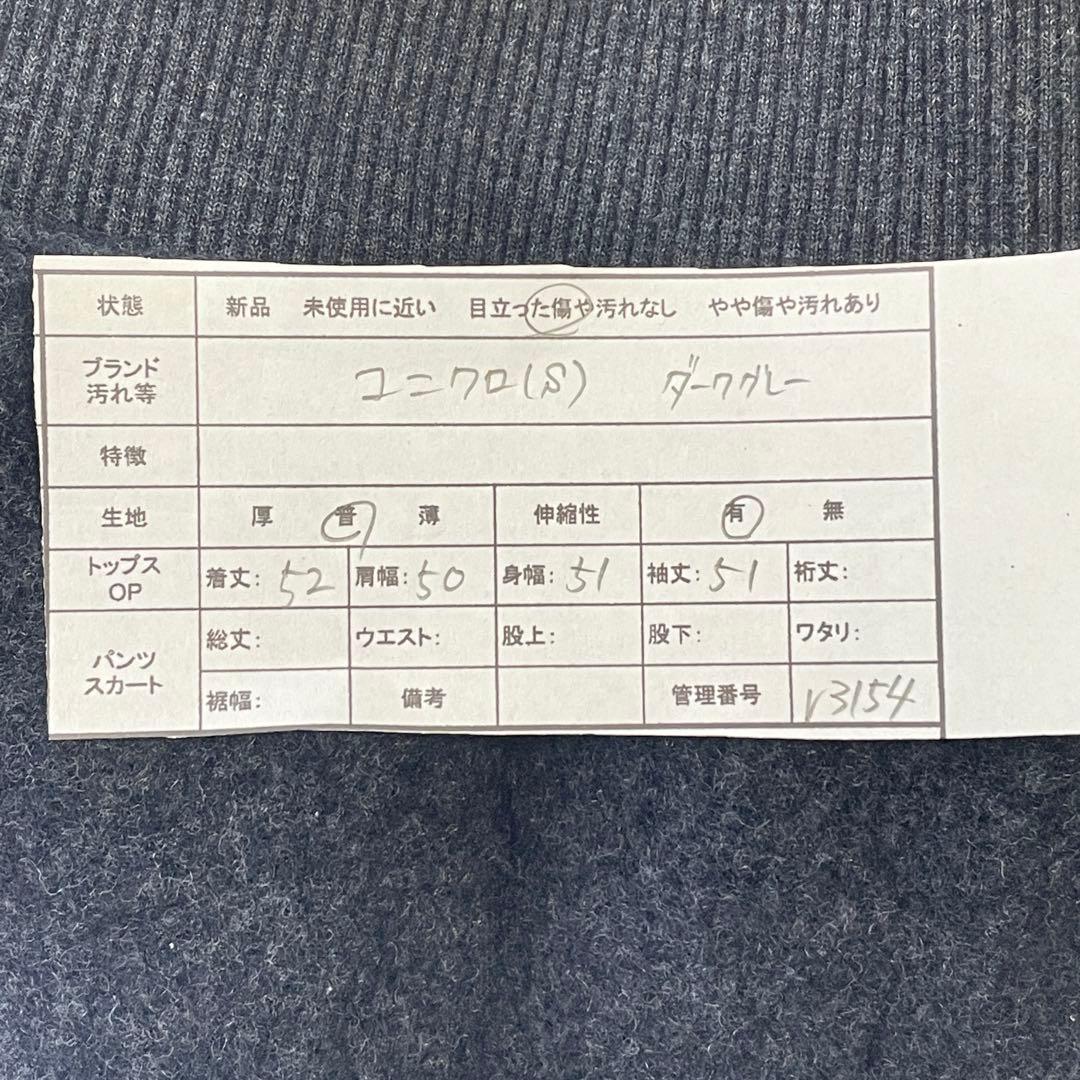 状態 新品 未使用に近い 目立った傷や汚れなし やや傷や汚れあり
ブランド
汚れ等 ユニクロ(S) ダークグレー
特徴
生地 厚 普 薄 伸縮性 有 無
トップス
OP 着丈: 52 肩幅: 50 身幅: 51 袖丈: 51 裄丈:
パンツ
スカート 総丈: ウエスト: 股上: 股下: ワタリ:
裾幅: 備考 管理番号 r3154